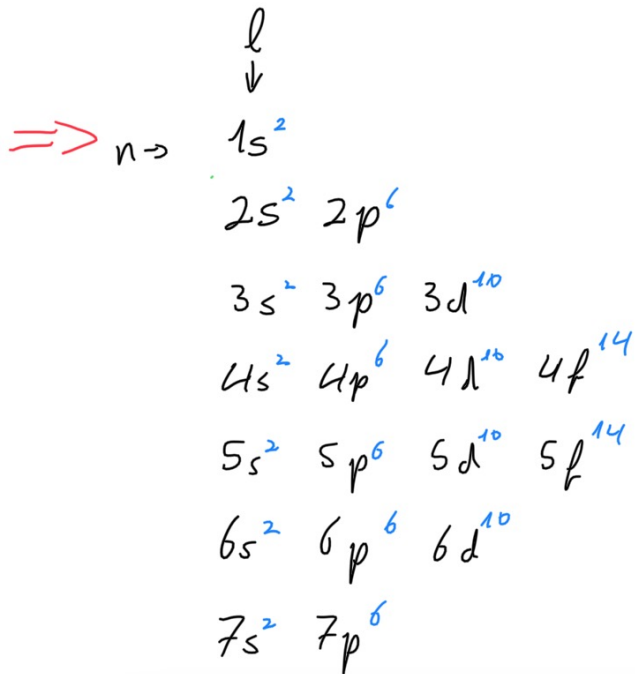 l
↓
⇒ n→ 1s²
2s² 2p⁶
3s² 3p⁶ 3d¹⁰
4s² 4p⁶ 4d¹⁰ 4f¹⁴
5s² 5p⁶ 5d¹⁰ 5f¹⁴
6s² 6p⁶ 6d¹⁰
7s² 7p⁶